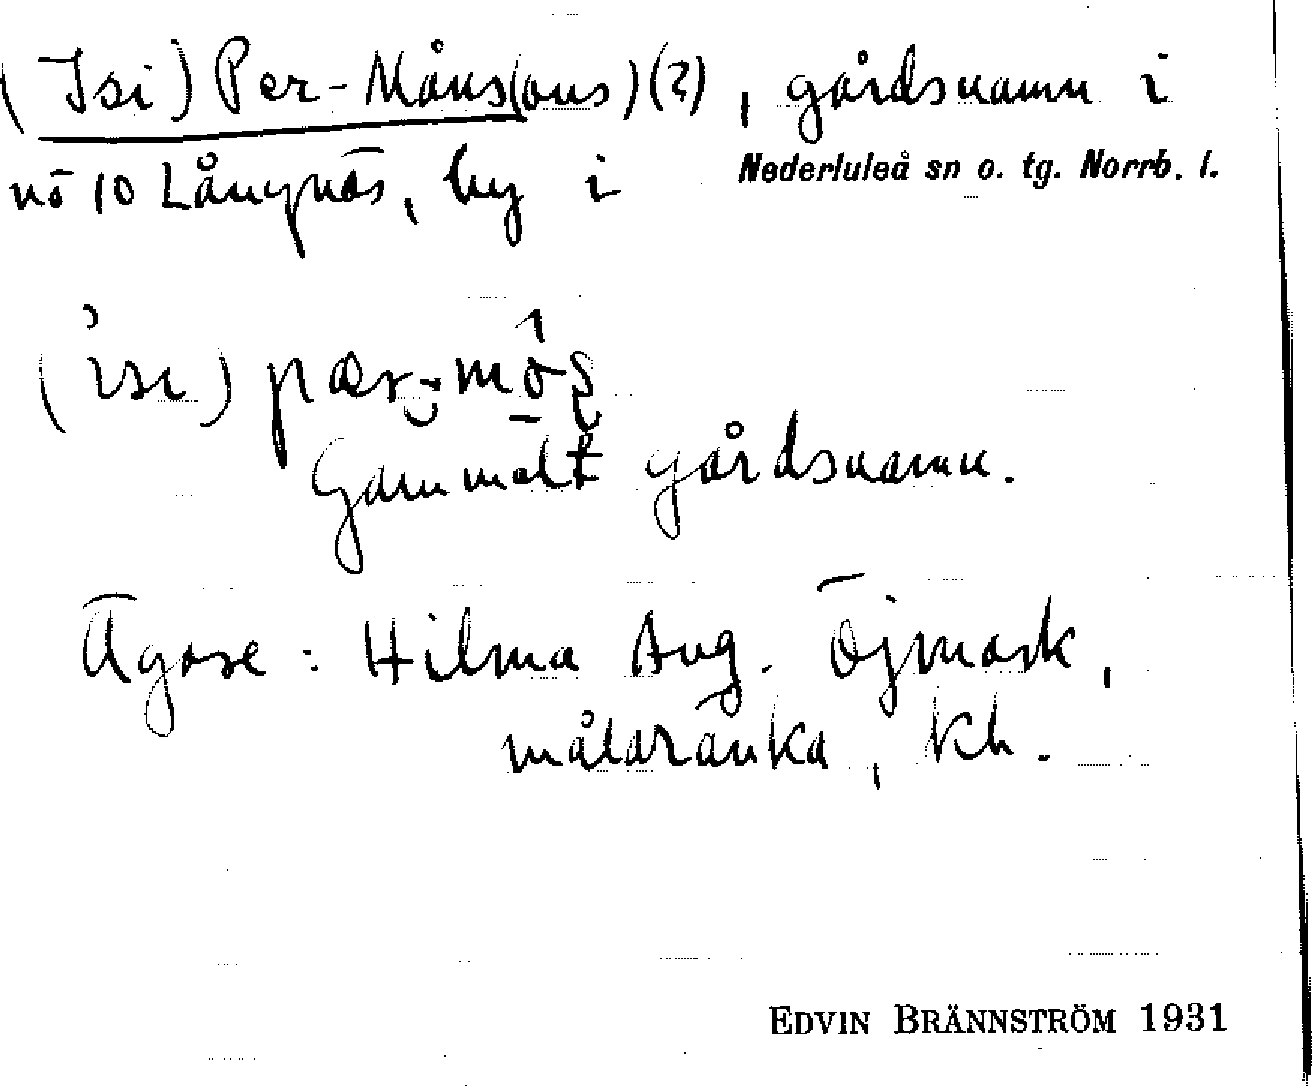 (Isi) Per-Måns(ons)(?), gårdsnamn i
nō 10 Långnäs, by i Nederluleå sn o. tg. Norrb. l.
(isi) pær-môs
Gammalt gårdsnamn.
Ägare: Hilma Aug. Öjmark,
målaränka, Kh.
EDVIN BRÄNNSTRÖM 1931